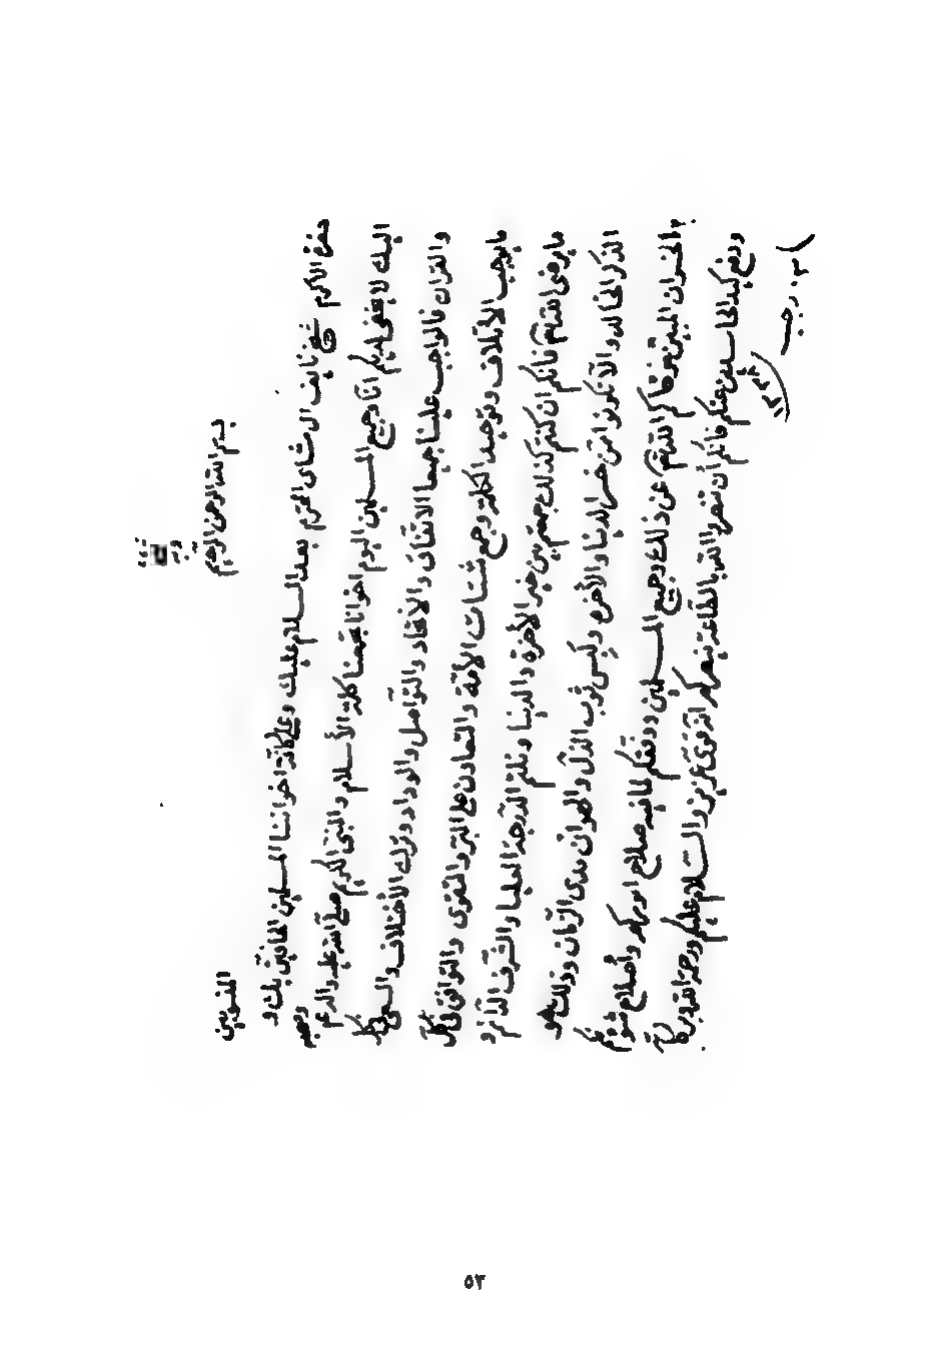 بسم الله الرحمن الرحيم
حضرة الاكرم شيخ نايف ال مشاي المحترم بعد السلام عليك وعلى كافة اخواننا المسلمين الحافين بك و
اليك لا يخفى لديكم انا وجميع المسلمين اليوم اخوانا تجمعنا كلمة الأسلام والنبي الكريم صلى الله عليه واله
والقران فالواجب علينا جميعا الاتفاق والاتحاد والتواصل والوداد وترك الأختلاف والسعي
ما يوجب الأئتلاف وتوحيد الكلمة وجمع شتات الأمة والتعاون على البر والتقوى والتوافق في كل
ما يرضى الله تعالى فانكم ان كنتم كذلك جمعتم بين خير الأخرة والدنيا ونلتم الدرجة العليا والشرف الدائم و
الذكر الخالد والا تكونوا ممن خسر الدنيا والأخرة وكسى ثوب الذل والهوان مدى الزمان وذلك هو
الخسران المبين عن ذلك وجميع المسلمين ووفقكم لما فيه صلاح اموركم وأصلاح
ودفع كيد الحاسدين عنكم فانكم أن تنصروا الله بالطاعة ينصركم انه قوي عزيز والسلام عليكم ورحمة الله وبركاته
رجب
٥٣